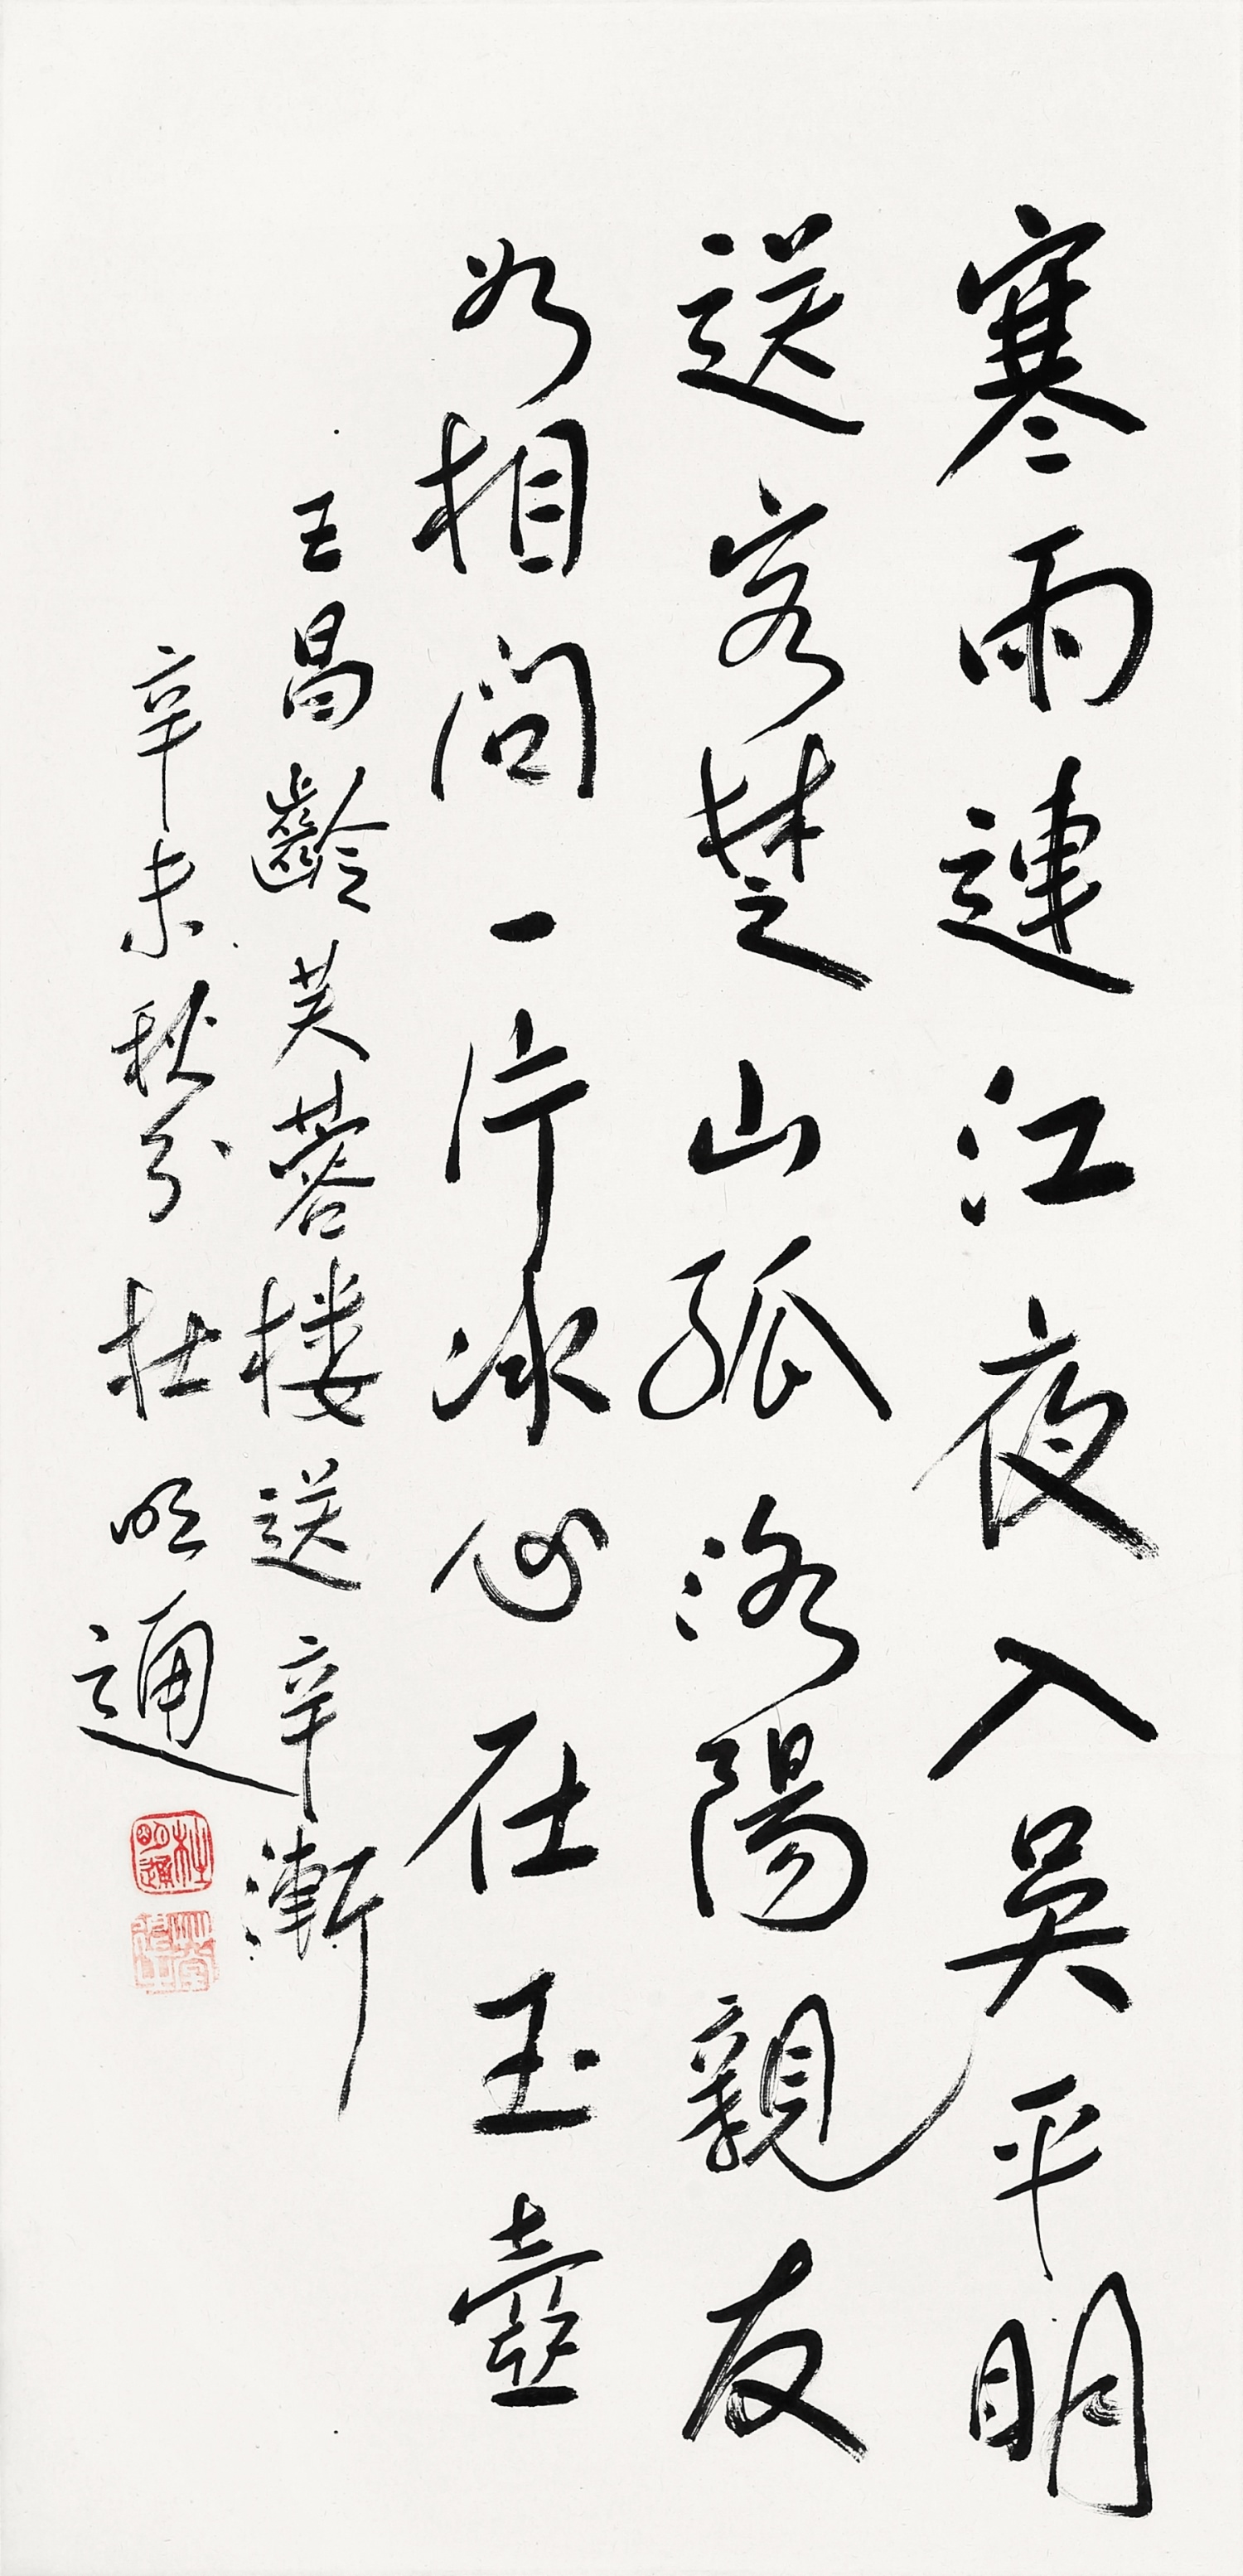 寒雨連江夜入吳平明
送客楚山孤洛陽親友
如相問一片冰心在玉壺
王昌齡芙蓉樓送辛漸
辛未秋分杜明通
杜明通